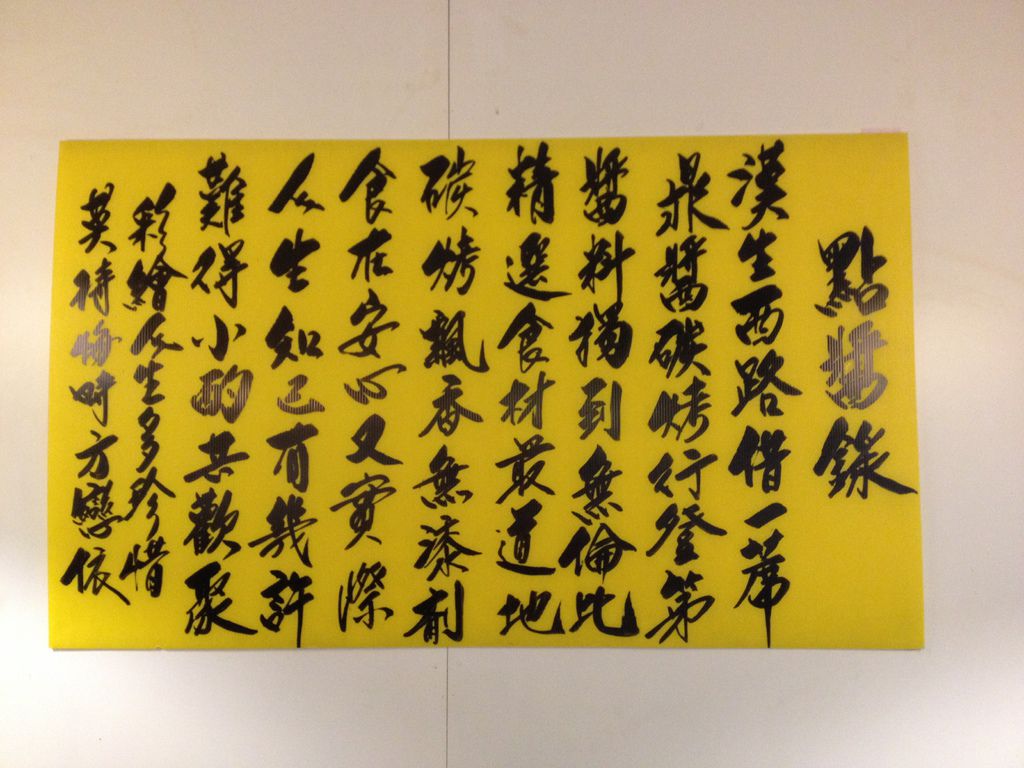 點醬錄
漢生西路借一蓆
鼎醬碳烤行登第
醬料獨到無倫比
精選食材最道地
碳烤飄香無漆劑
食在安心又實際
人生知己有幾許
難得小酌共歡聚
彩繪人生多珍惜
莫待悔時方戀依